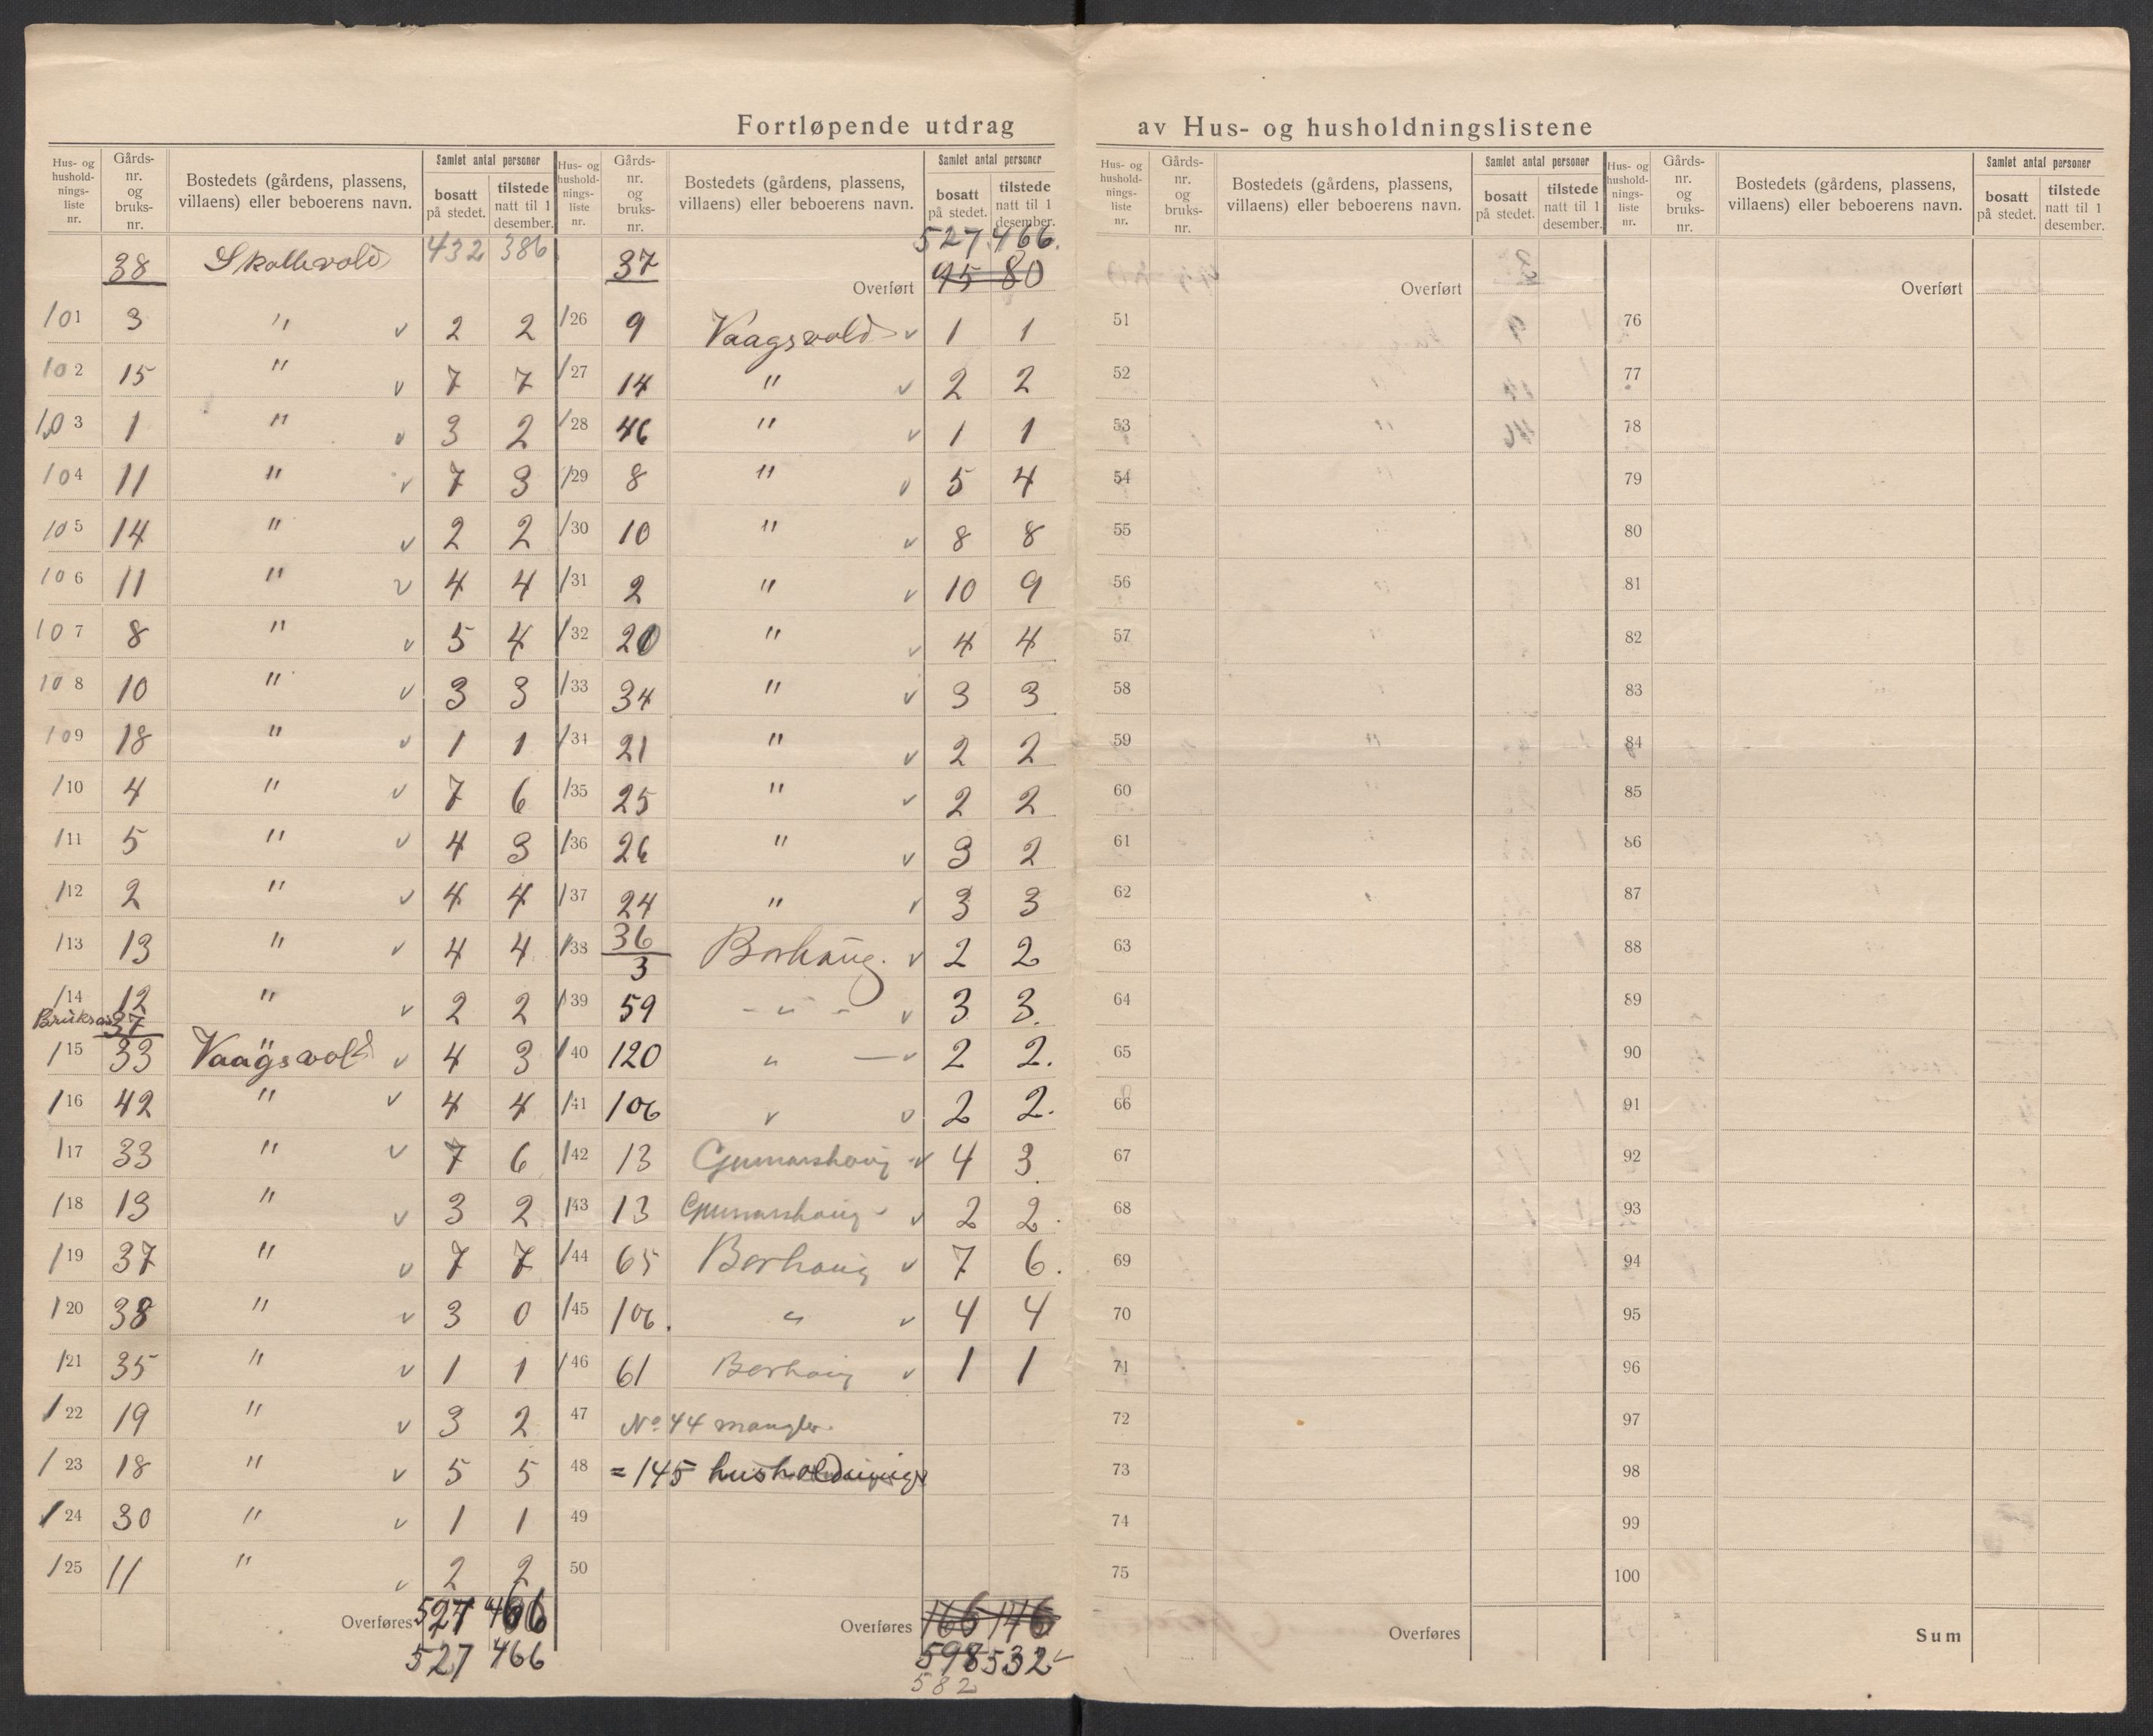 Fortløpende utdrag av Hus- og husholdningslistene
Hus- og hushold-nings-liste nr. Gårds-nr. og bruks-nr. Bostedets (gårdens, plassens, villaens) eller beboerens navn. Samlet antal personer bosatt på stedet. tilstede natt til 1 desember.
Hus- og hushold-nings-liste nr. Gårds-nr. og bruks-nr. Bostedets (gårdens, plassens, villaens) eller beboerens navn. Samlet antal personer bosatt på stedet. tilstede natt til 1 desember.
38 Skollevold 432 386
101 3 " v 2 2
102 15 " v 7 7
103 1 " v 3 2
104 11 " v 7 3
105 14 " v 2 2
106 11 " v 4 4
107 8 " v 5 4
108 10 " v 3 3
109 18 " v 1 1
110 4 " v 7 6
111 5 " v 4 3
112 2 " v 4 4
113 13 " v 4 4
114 12 " v 2 2
37
115 33 Vaagsvold v 4 3
116 42 " v 4 4
117 33 " v 7 6
118 13 " v 3 2
119 37 " v 7 7
120 38 " v 3 0
121 35 " v 1 1
122 19 " v 3 2
123 18 " v 5 5
124 30 " v 1 1
125 11 " v 2 2
Overføres 527 466
527 466
37 527 466.
Overført 95 80
126 9 Vaagsvold v 1 1
127 14 " v 2 2
128 46 " v 1 1
129 8 " v 5 4
130 10 " v 8 8
131 2 " v 10 9
132 20 " v 4 4
133 34 " v 3 3
134 21 " v 2 2
135 25 " v 2 2
136 26 " v 3 2
137 24 " v 3 3
36
138 3 Borhaug. v 2 2
139 59 - " - v 3 3.
140 120 " — v 2 2.
141 106 v v 2 2.
142 13 Gunnarshoug v 4 3.
143 13 Gunnarshoug v 2 2.
144 65 Borhaug v 7 6.
145 106. " v 4 4
146 61 Borhaug v 1 1
47 No 44 mangler.
48 = 145 husholdninger
49
50
Overføres 166 146
598 532
582
Hus- og hushold-nings-liste nr. Gårds-nr. og bruks-nr. Bostedets (gårdens, plassens, villaens) eller beboerens navn. Samlet antal personer bosatt på stedet. tilstede natt til 1 desember.
Overført
51
52
53
54
55
56
57
58
59
60
61
62
63
64
65
66
67
68
69
70
71
72
73
74
75
Overføres
Hus- og hushold-nings-liste nr. Gårds-nr. og bruks-nr. Bostedets (gårdens, plassens, villaens) eller beboerens navn. Samlet antal personer bosatt på stedet. tilstede natt til 1 desember.
Overført
76
77
78
79
80
81
82
83
84
85
86
87
88
89
90
91
92
93
94
95
96
97
98
99
100
Sum